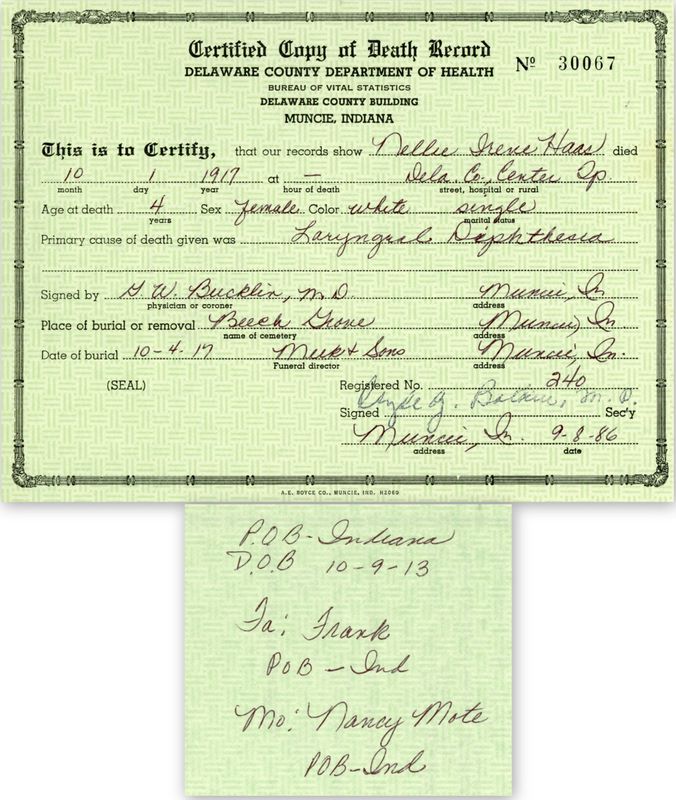 Certified Copy of Death Record
Nº 30067
DELAWARE COUNTY DEPARTMENT OF HEALTH
BUREAU OF VITAL STATISTICS
DELAWARE COUNTY BUILDING
MUNCIE, INDIANA
This is to Certify, that our records show Nellie Irene Haas died
10 1 1917 at — Dela. Co., Center Tp
month day year hour of death street, hospital or rural
Age at death 4 Sex female Color white single
years marital status
Primary cause of death given was Laryngeal Diphtheria
Signed by G. W. Bucklin, M.D. Muncie, In
physician or coroner address
Place of burial or removal Beech Grove Muncie, In
name of cemetery address
Date of burial 10-4-17 Meek & Sons Muncie, In.
Funeral director address
(SEAL) Registered No. 240
Signed M.D. Sec'y
Muncie, In. 9-8-86
address date
A.E. BOYCE CO., MUNCIE, IND. H2069
P.O.B - Indiana
D.O.B 10-9-13
Fa: Frank
POB - Ind
Mo: Nancy Mote
POB - Ind